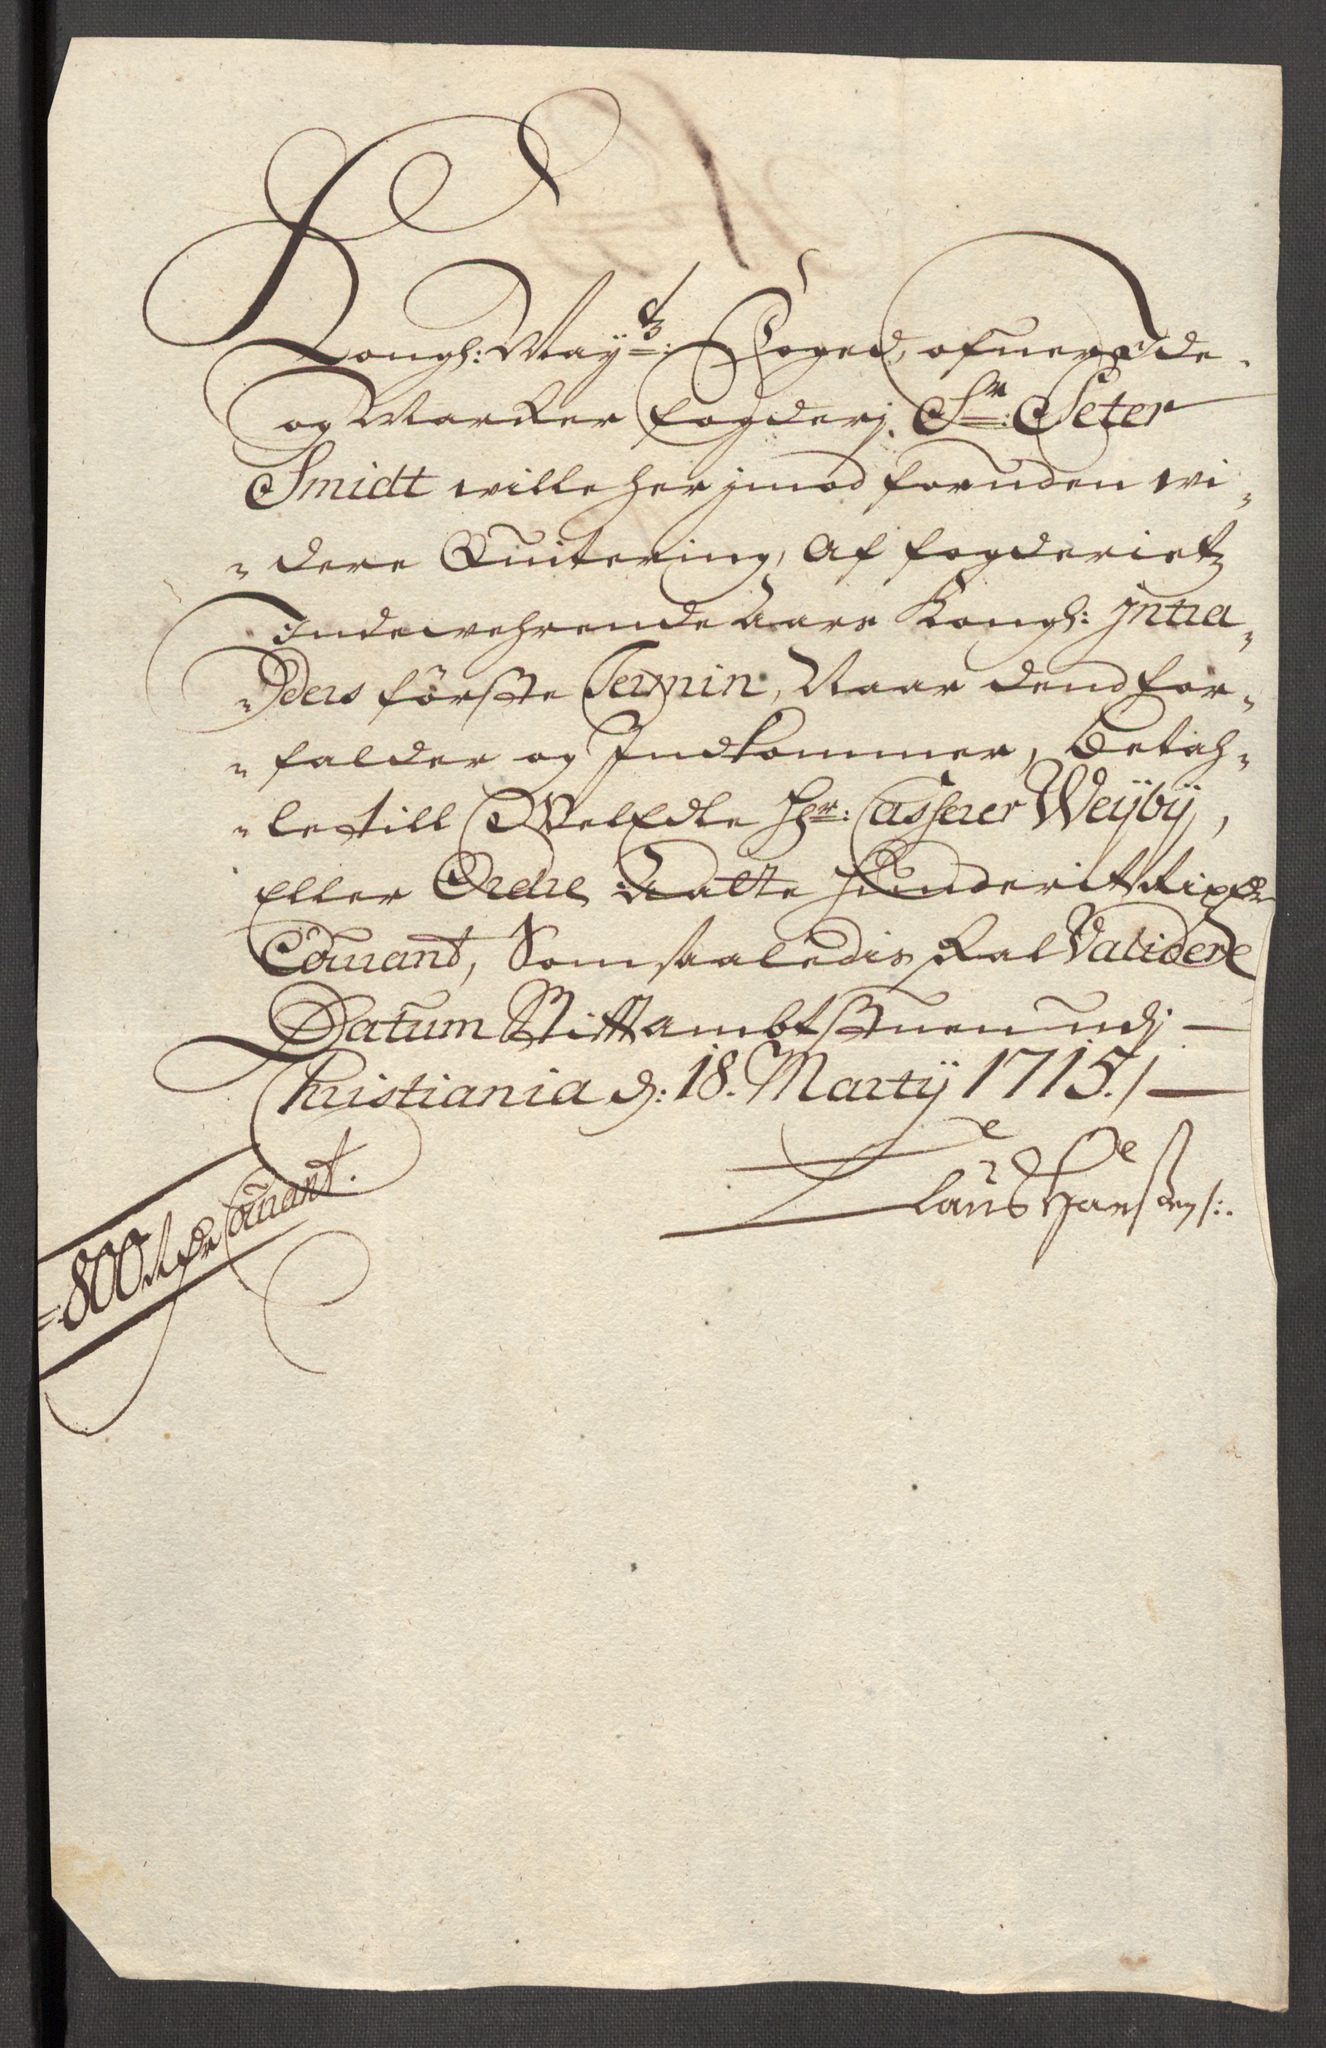 Kongl: May:tz: Foged, ofuer Idde
og Marker fogderj, Sr: Peter
Smidt wille her jmod foruden wi-
dere Quitering, Af fogderietz
Indewehrende Aars Kongl: Intra-
ders første Termin, Naar dend for-
falder og Indkommer, betah-
le till WelEdle Hr: Casserer Weÿbÿ,
Eller Ordre Aatte hunderit Rixdr
Courant, Som saaledis skal Validere
Datum Stifftambtstuen udj
Christiania d: 18. Martij 1715 /
Claus Hansen
=800 Rdr Courant.